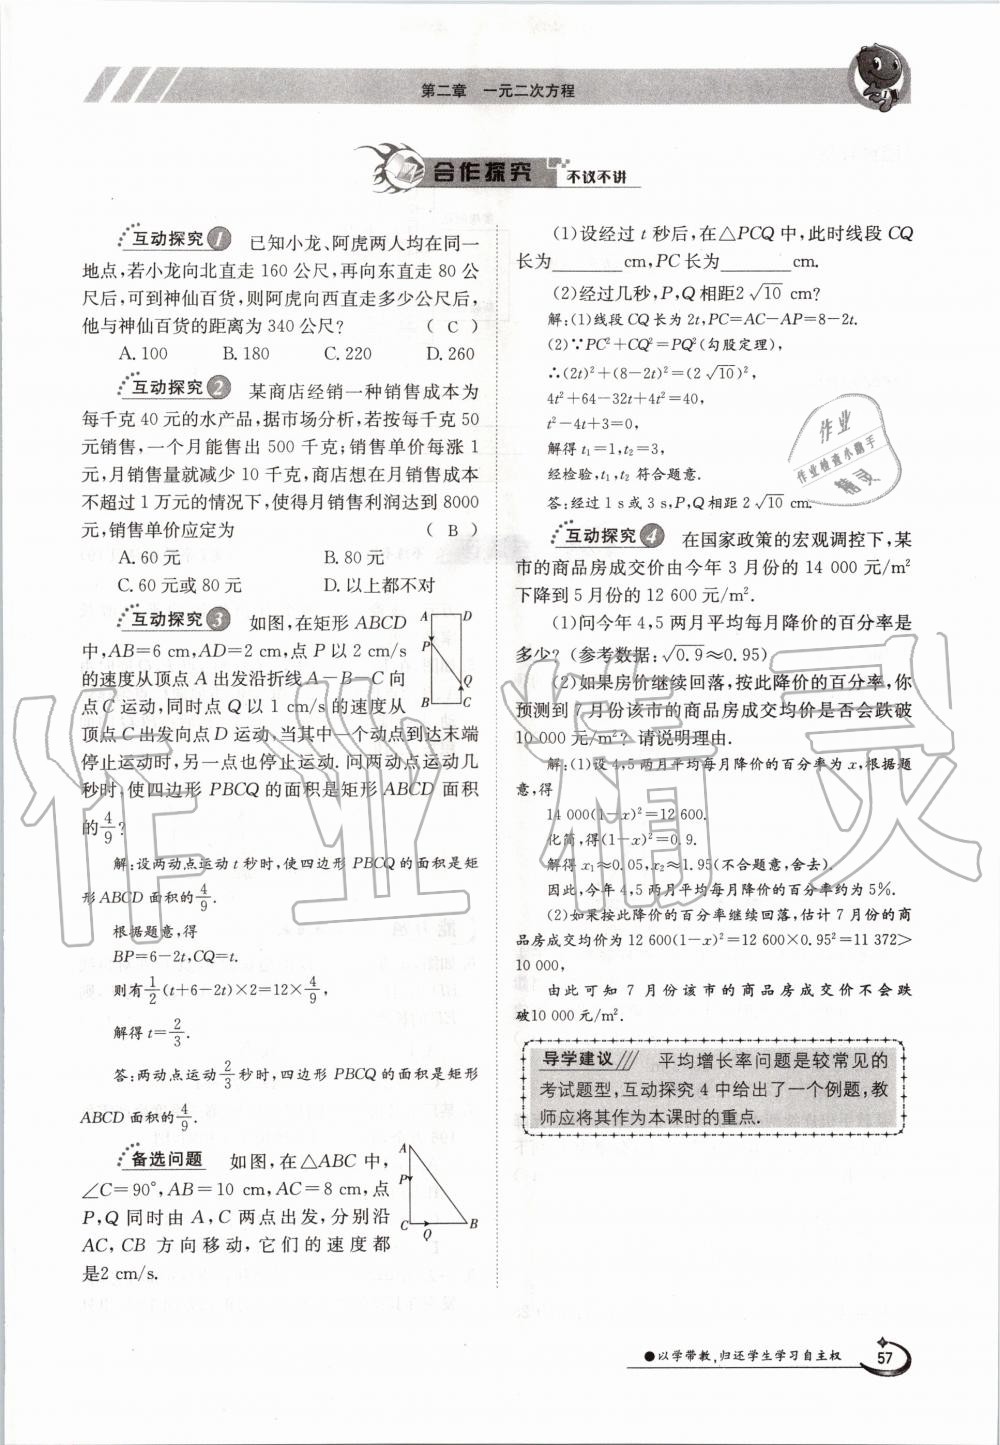 第二章 一元二次方程
合作探究 不议不讲
互动探究1 已知小龙、阿虎两人均在同一
地点,若小龙向北直走 160 公尺,再向东直走 80 公
尺后,可到神仙百货,则阿虎向西直走多少公尺后,
他与神仙百货的距离为 340 公尺? ( C )
A. 100 B. 180 C. 220 D. 260
互动探究2 某商店经销一种销售成本为
每千克 40 元的水产品,据市场分析,若按每千克 50
元销售,一个月能售出 500 千克;销售单价每涨 1
元,月销售量就减少 10 千克,商店想在月销售成本
不超过 1 万元的情况下,使得月销售利润达到 8000
元,销售单价应定为 ( B )
A. 60 元 B. 80 元
C. 60 元或 80 元 D. 以上都不对
互动探究3 如图,在矩形 ABCD
中,AB=6 cm,AD=2 cm,点 P 以 2 cm/s
的速度从顶点 A 出发沿折线 A-B-C 向
点 C 运动,同时点 Q 以 1 cm/s 的速度从
顶点 C 出发向点 D 运动,当其中一个动点到达末端
停止运动时,另一点也停止运动.问两动点运动几
秒时,使四边形 PBCQ 的面积是矩形 ABCD 面积
的4/9?
A D
P
Q
B C
解:设两动点运动 t 秒时,使四边形 PBCQ 的面积是矩
形 ABCD 面积的4/9.
根据题意,得
BP=6-2t,CQ=t.
则有1/2(t+6-2t)×2=12×4/9,
解得 t=2/3.
答:两动点运动2/3秒时,四边形 PBCQ 的面积是矩形
ABCD 面积的4/9.
备选问题 如图,在△ABC 中,
∠C=90°,AB=10 cm,AC=8 cm,点
P,Q 同时由 A,C 两点出发,分别沿
AC,CB 方向移动,它们的速度都
是2 cm/s.
A
P
C Q B
(1)设经过 t 秒后,在△PCQ 中,此时线段 CQ
长为________cm,PC 长为________cm.
(2)经过几秒,P,Q 相距2√10 cm?
解:(1)线段 CQ 长为 2t,PC=AC-AP=8-2t.
(2)∵PC²+CQ²=PQ²(勾股定理),
∴(2t)²+(8-2t)²=(2√10)²,
4t²+64-32t+4t²=40,
t²-4t+3=0,
解得 t₁=1,t₂=3,
经检验,t₁,t₂ 符合题意.
答:经过 1 s 或 3 s,P,Q 相距 2√10 cm.
互动探究4 在国家政策的宏观调控下,某
市的商品房成交价由今年 3 月份的 14 000 元/m²
下降到 5 月份的 12 600 元/m².
(1)问今年 4,5 两月平均每月降价的百分率是
多少?(参考数据:√0.9≈0.95)
(2)如果房价继续回落,按此降价的百分率,你
预测到 7 月份该市的商品房成交均价是否会跌破
10 000 元/m²? 请说明理由.
解:(1)设 4,5 两月平均每月降价的百分率为 x,根据题
意,得
14 000(1-x)²=12 600.
化简,得(1-x)²=0.9.
解得 x₁≈0.05,x₂≈1.95(不合题意,舍去).
因此,今年 4,5 两月平均每月降价的百分率约为 5%.
(2)如果按此降价的百分率继续回落,估计 7 月份的商
品房成交均价为 12 600(1-x)²=12 600×0.95²=11 372>
10 000,
由此可知 7 月份该市的商品房成交价不会跌
破10 000 元/m².
导学建议 平均增长率问题是较常见的
考试题型,互动探究 4 中给出了一个例题,教
师应将其作为本课时的重点.
作业
作业检查小助手
精灵
作业精灵
●以学带教,归还学生学习自主权 57